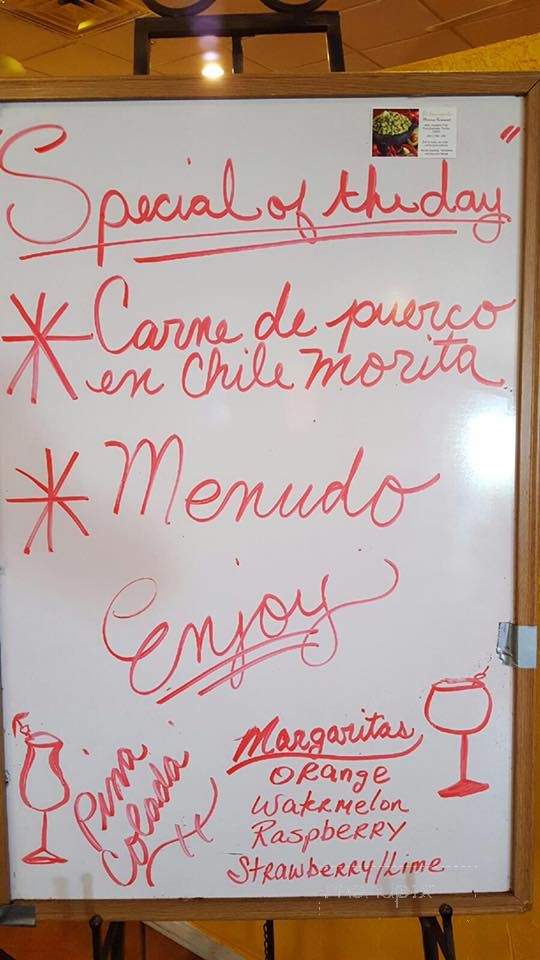 "Special of the day"
Carne de puerco
en Chile morita
Menudo
Enjoy
Piña
Colada
Margaritas
Orange
Watermelon
Raspberry
Strawberry/Lime